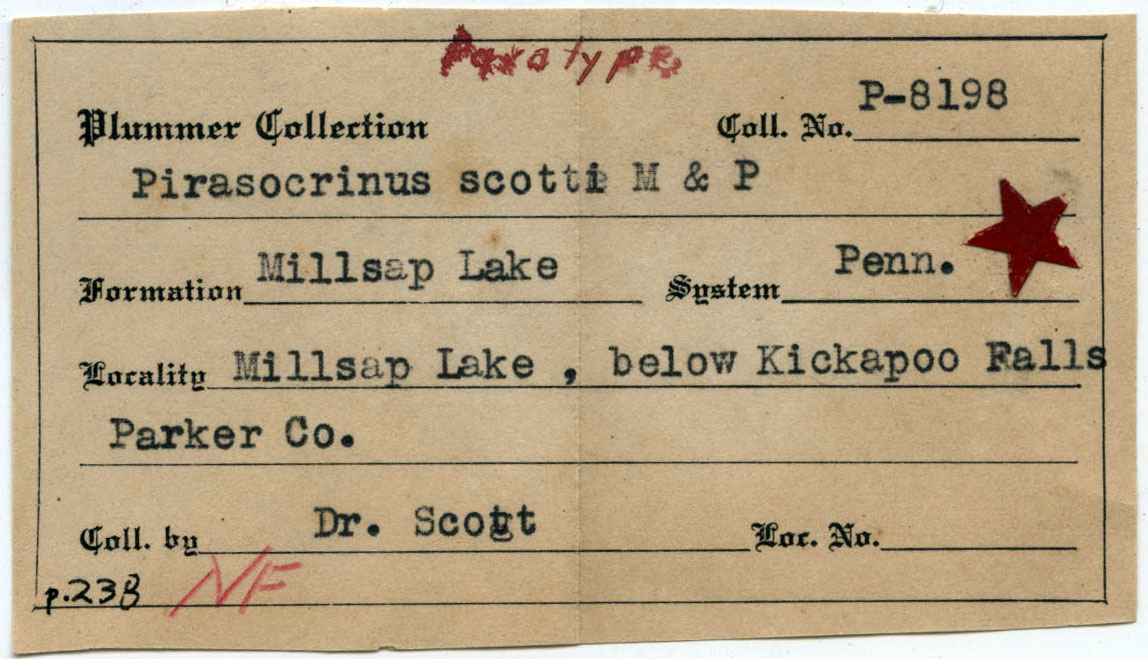 Paratype
Plummer Collection Coll. No. P-8198
Pirasocrinus scotti M & P
Formation Millsap Lake System Penn.
Locality Millsap Lake , below Kickapoo Falls
Parker Co.
Coll. by Dr. Scott Loc. No.
p.238 NF